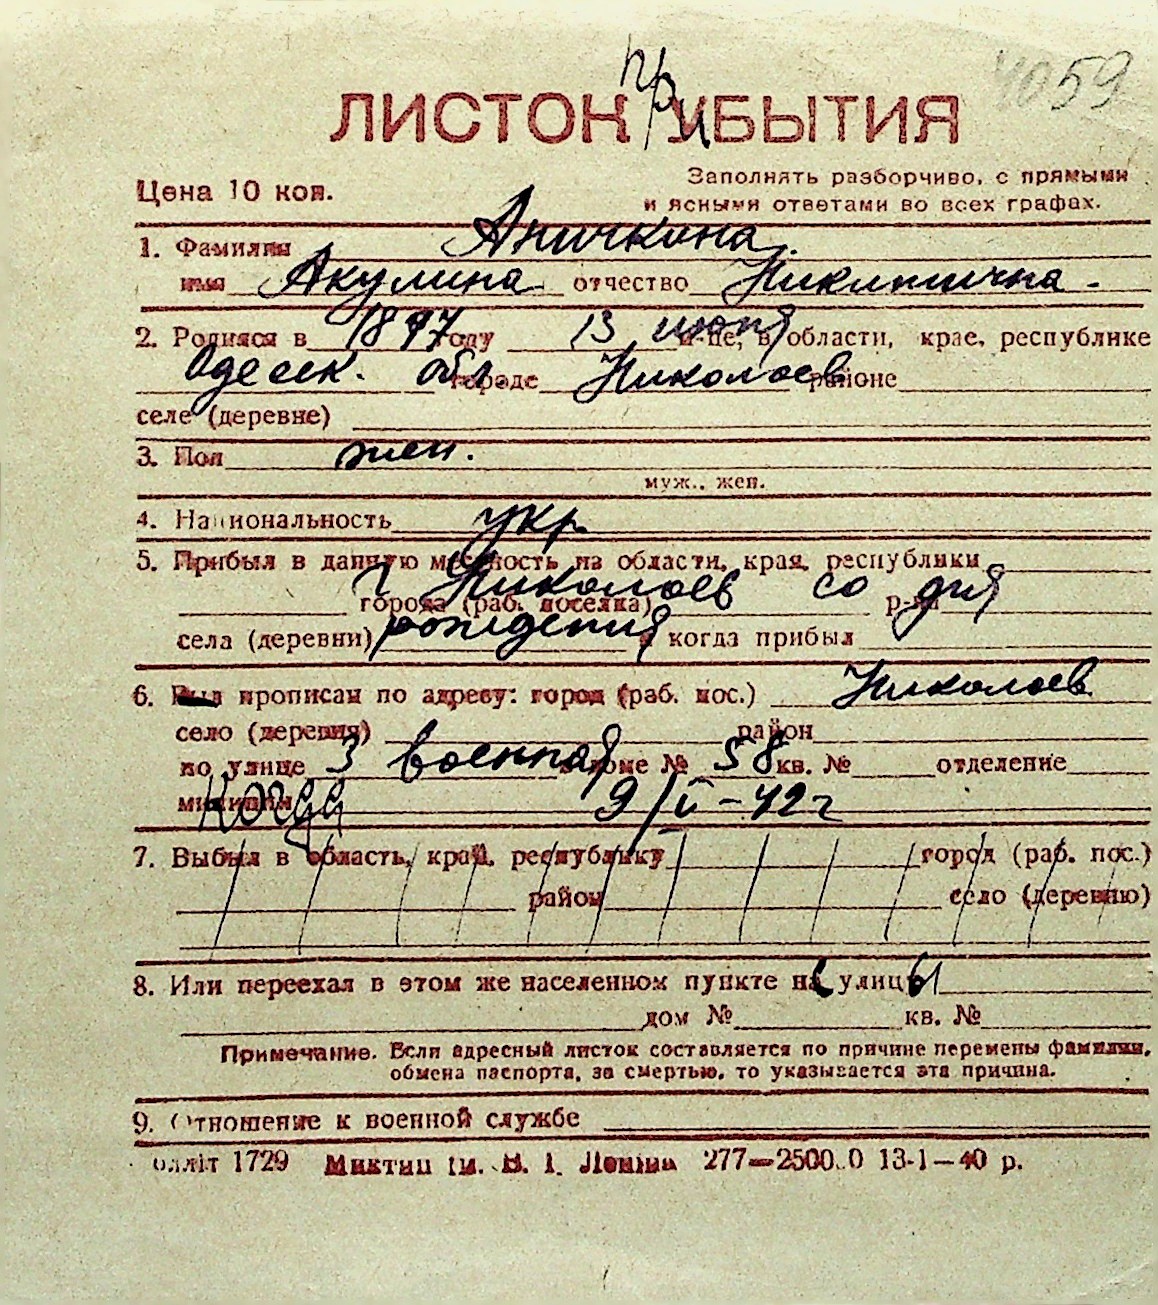 4059
ЛИСТОК ПрИБЫТИЯ
Цена 10 коп.
Заполнять разборчиво, с прямыми
и ясными ответами во всех графах.
1. Фамилия Аничкина
имя Акулина отчество Никитична
2. Родился в 1897 году 13 июня м-це, в области, крае, республике
Одесск. обл. городе Николаев районе
селе (деревне)
3. Пол жен.
муж., жен.
4. Национальность укр.
5. Прибыл в данную местность из области, края, республики
г Николаев со дня
города (раб. поселка) р-на
села (деревни) рождения и когда прибыл
6. прописан по адресу: город (раб. пос.) Николаев
село (деревня) район
по улице 3 Военная в доме № 58 кв. № отделение
милиции Когда 9/V-42 г
7. Выбыл в область, край, республику город (раб. пос.)
район село (деревню)
8. Или переехал в этом же населенном пункте с улицы
дом № кв. №
Примечание. Если адресный листок составляется по причине перемены фамилии,
обмена паспорта, за смертью, то указывается эта причина.
9. Отношение к военной службе
1729 277—2500.0 13-1—40 р.